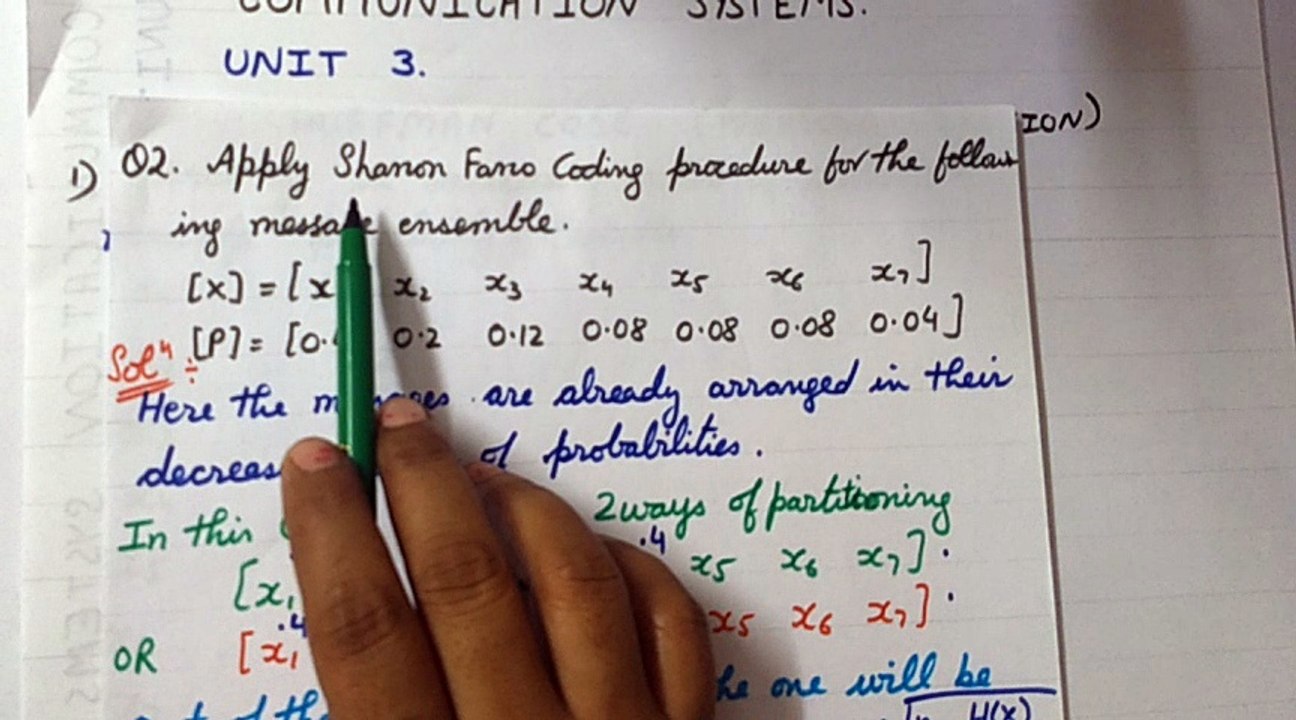 COMMUNICATION SYSTEMS.
UNIT 3.
ION)
1) Q2. Apply Shanon Fano Coding procedure for the follow
ing message ensemble.
[X] = [x x2 x3 x4 x5 x6 x7]
Soln ÷ [P] = [0. 0.2 0.12 0.08 0.08 0.08 0.04]
Here the are already arranged in their
of probabilities.
In this 2ways of partitioning
.4
[x1 x5 x6 x7].
.4
OR [x1 x5 x6 x7].
one will be
H(X)